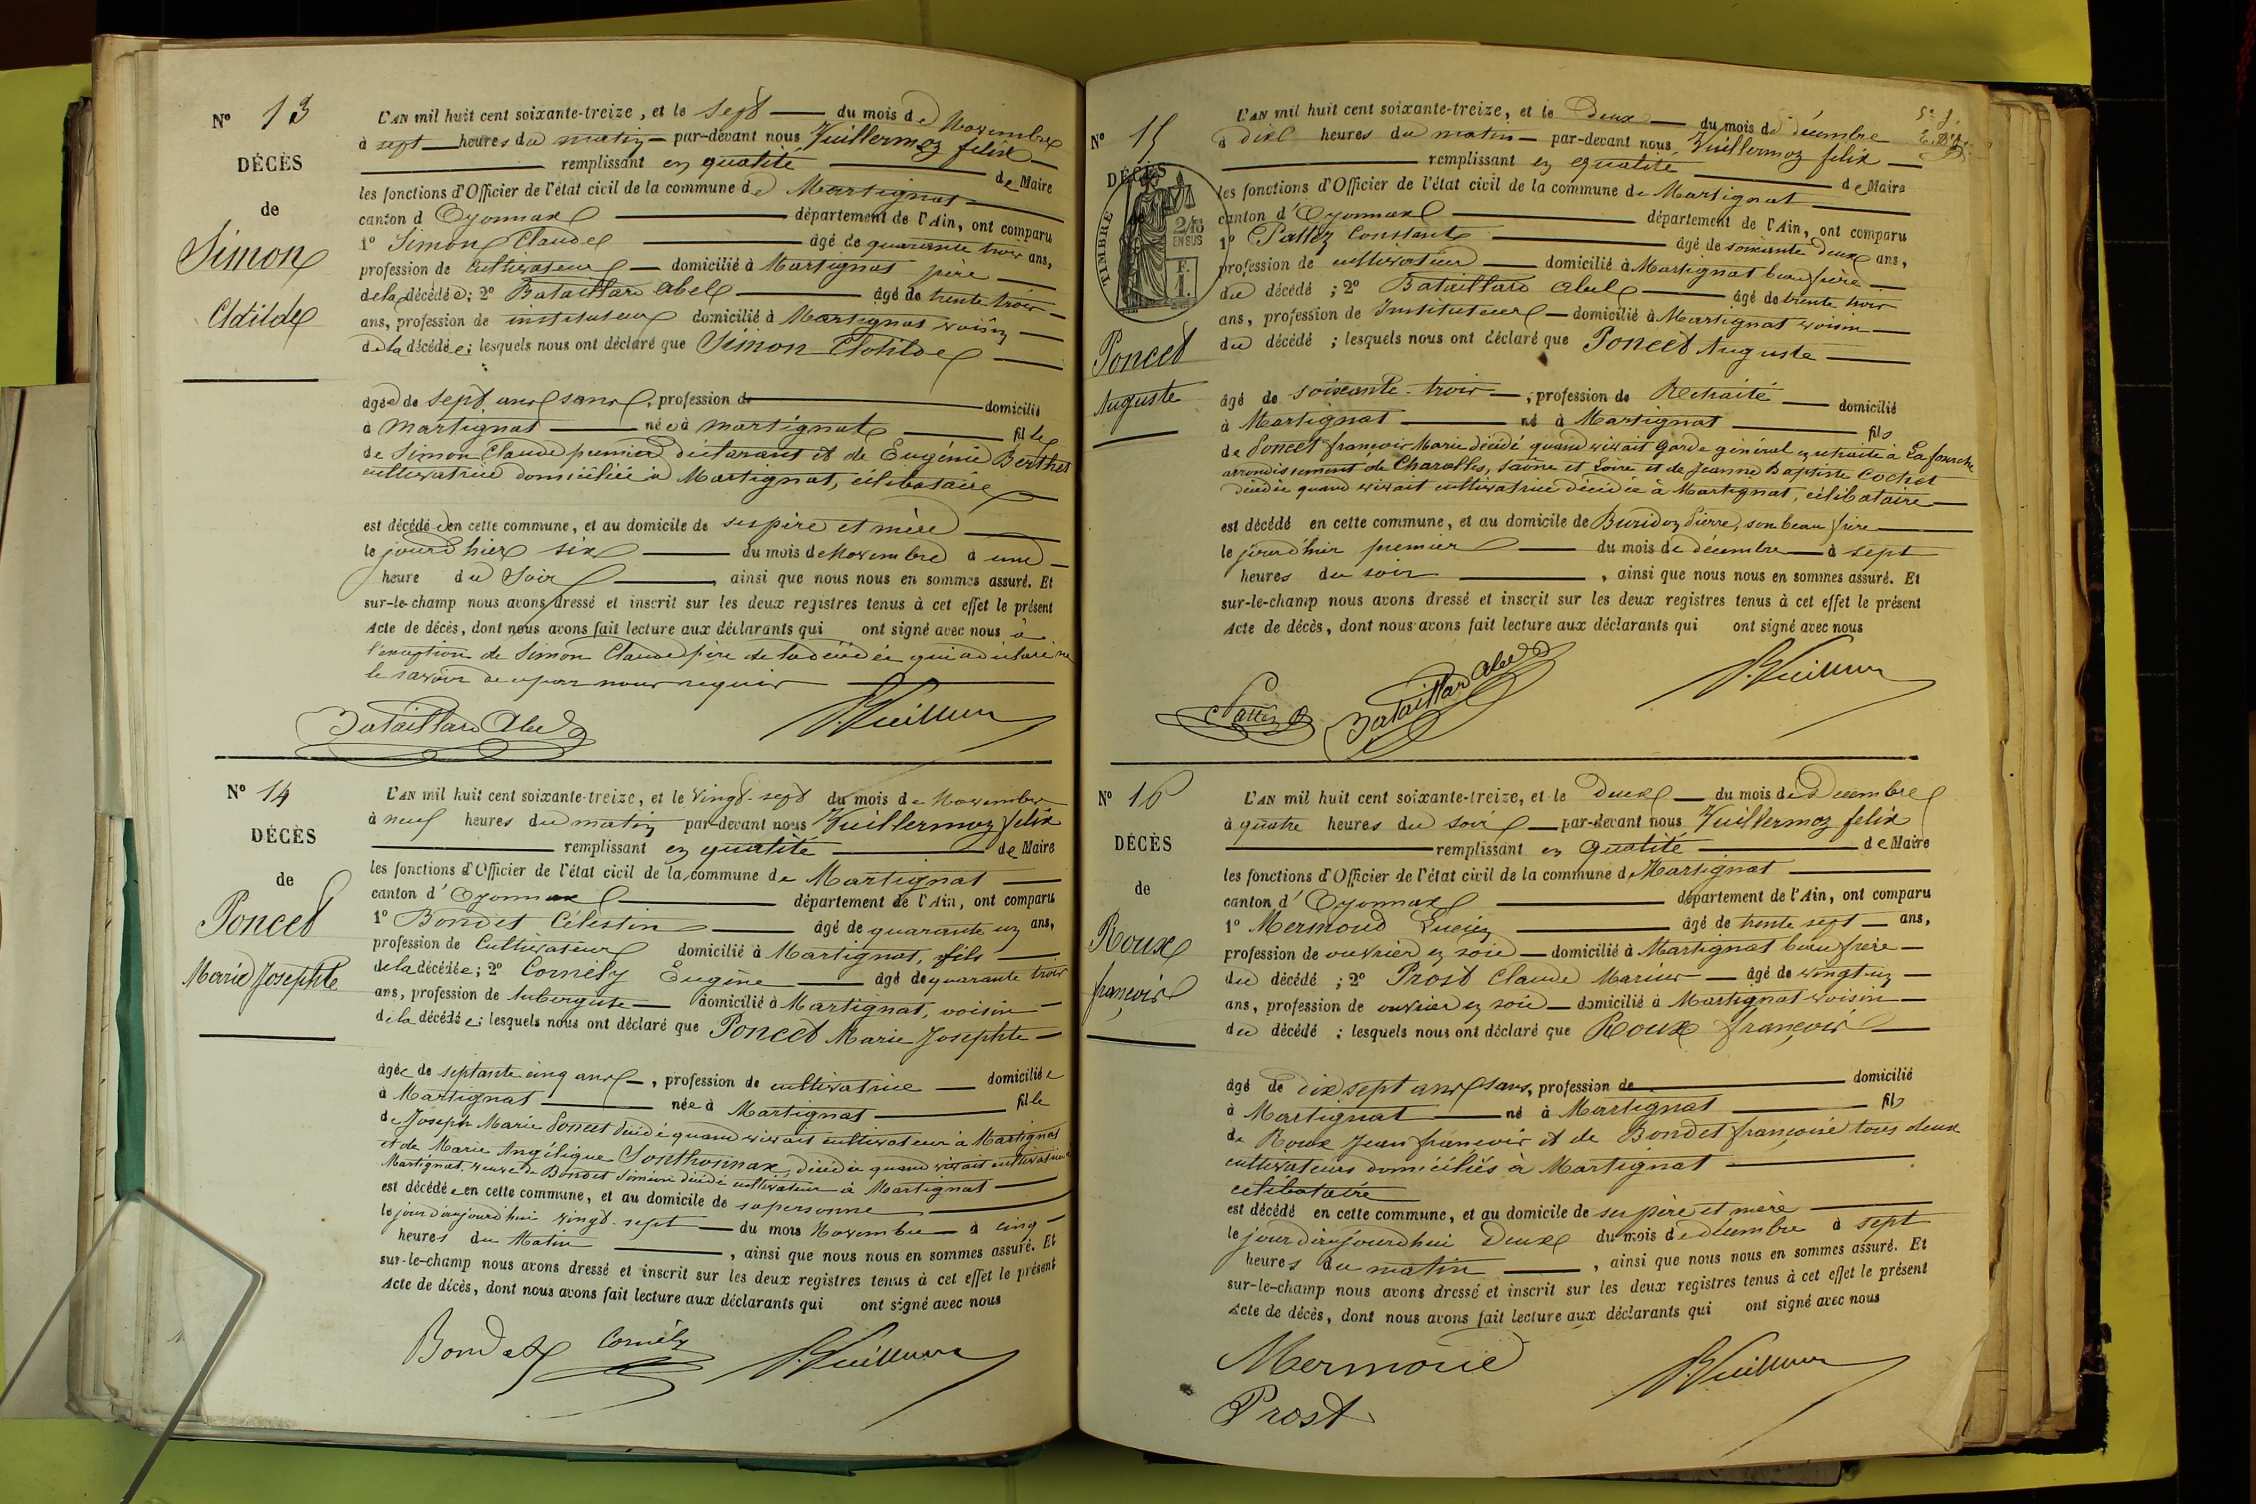 Nº 13
DÉCÈS
de
Simon
Clotilde
L'AN mil huit cent soixante-treize, et le sept du mois de Novembre
à sept heures du matin par-devant nous Vuillermoz felix
remplissant en qualité de Maire
les fonctions d'Officier de l'état civil de la commune de Martignat
canton d Oyonnax département de l'Ain, ont comparu
1º Simon Claude âgé de quarante trois ans,
profession de Cultivateur domicilié à Martignat père
de la décédée; 2º Bataillard abel âgé de trente trois
ans, profession de instituteur domicilié à Martignat voisin
de la décédée; lesquels nous ont déclaré que Simon Clotilde
âgée de sept ans sans, profession de domicilié
à Martignat née à Martignat fille
de Simon Claude premier déclarant et de Eugénie Berthet
cultivatrice domiciliée à Martignat, célibataire
est décédé en cette commune, et au domicile de ses père et mère
le jour d'hier six du mois de Novembre à une
heure du Soir, ainsi que nous nous en sommes assuré. Et
sur-le-champ nous avons dressé et inscrit sur les deux registres tenus à cet effet le présent
Acte de décès, dont nous avons fait lecture aux déclarants qui ont signé avec nous à
l'exception de Simon Claude père de la décédée qui a déclaré ne
le savoir de ce par nous requis
Bataillard Abel
F. Vuillerm
Nº 14
DÉCÈS
de
Poncet
Marie Josephte
L'AN mil huit cent soixante-treize, et le vingt-sept du mois de Novembre
à neuf heures du matin par-devant nous Vuillermoz felix
remplissant en qualité de Maire
les fonctions d'Officier de l'état civil de la commune de Martignat
canton d'Oyonnax département de l'Ain, ont comparu
1º Bondet Célestin âgé de quarante un ans,
profession de Cultivateur domicilié à Martignat, fils
de la décédée; 2º Cornély Eugène âgé de quarante trois
ans, profession de Aubergiste domicilié à Martignat, voisin
de la décédée; lesquels nous ont déclaré que Poncet Marie Josephte
âgée de septante cinq ans, profession de cultivatrice domiciliée
à Martignat née à Martignat fille
de Joseph Marie Poncet décédé quand vivait cultivateur à Martignat
et de Marie Angélique Sonthonnax, décédée quand vivait cultivatrice
Martignat, veuve de Bondet Siméon décédé cultivateur à Martignat
est décédée en cette commune, et au domicile de sa personne
le jour d'aujourd'hui vingt-sept du mois Novembre à cinq
heures du Matin, ainsi que nous nous en sommes assuré. Et
sur-le-champ nous avons dressé et inscrit sur les deux registres tenus à cet effet le présent
Acte de décès, dont nous avons fait lecture aux déclarants qui ont signé avec nous
Bondet Cornély F. Vuillerm
Nº 15
DÉCÈS
TIMBRE
2/10
EN SUS
F.
1.
Poncet
Auguste
L'AN mil huit cent soixante-treize, et le Deux du mois de décembre
à dix heures du matin par-devant nous, Vuillermoz felix
remplissant en qualité de Maire
les fonctions d'Officier de l'état civil de la commune de Martignat
canton d'Oyonnax département de l'Ain, ont comparu
1º Pattez Constant âgé de soixante deux ans,
profession de cultivateur domicilié à Martignat beau frère
du décédé; 2º Bataillard abel âgé de trente trois
ans, profession de Instituteur domicilié à Martignat voisin
du décédé; lesquels nous ont déclaré que Poncet Auguste
âgé de soixante-trois; profession de Retraité domicilié
à Martignat né à Martignat fils
de Poncet françois Marie décédé quand vivait Garde général en retraite à La fourche
arrondissement de Charolles, Saône et Loire et de Jeanne Baptiste Cochet
décédée quand vivait cultivatrice décédée à Martignat, célibataire
est décédé en cette commune, et au domicile de Buridoz Pierre, son beau frère
le jour d'hier premier du mois de décembre à sept
heures du soir, ainsi que nous nous en sommes assuré. Et
sur-le-champ nous avons dressé et inscrit sur les deux registres tenus à cet effet le présent
Acte de décès, dont nous avons fait lecture aux déclarants qui ont signé avec nous
C Pattez Bataillard Abel F. Vuillerm
Nº 16
DÉCÈS
de
Roux
françois
L'AN mil huit cent soixante-treize, et le Deux du mois de Décembre
à quatre heures du soir par-devant nous Vuillermoz felix
remplissant en qualité de Maire
les fonctions d'Officier de l'état civil de la commune de Martignat
canton d'Oyonnax département de l'Ain, ont comparu
1º Mermoud Lucien âgé de trente sept ans,
profession de ouvrier en soie domicilié à Martignat beau frère
du décédé; 2º Prost Claude Marius âgé de vingt un
ans, profession de ouvrier en soie domicilié à Martignat voisin
du décédé; lesquels nous ont déclaré que Roux françois
âgé de dix sept ans sans, profession de domicilié
à Martignat né à Martignat fils
de Roux Jean françois et de Bondet françoise tous deux
cultivateurs domiciliés à Martignat
célibataire
est décédé en cette commune, et au domicile de ses père et mère
le jour d'aujourd'hui Deux du mois de décembre à sept
heures du matin, ainsi que nous nous en sommes assuré. Et
sur-le-champ nous avons dressé et inscrit sur les deux registres tenus à cet effet le présent
Acte de décès, dont nous avons fait lecture aux déclarants qui ont signé avec nous
Mermoud F. Vuillerm
Prost